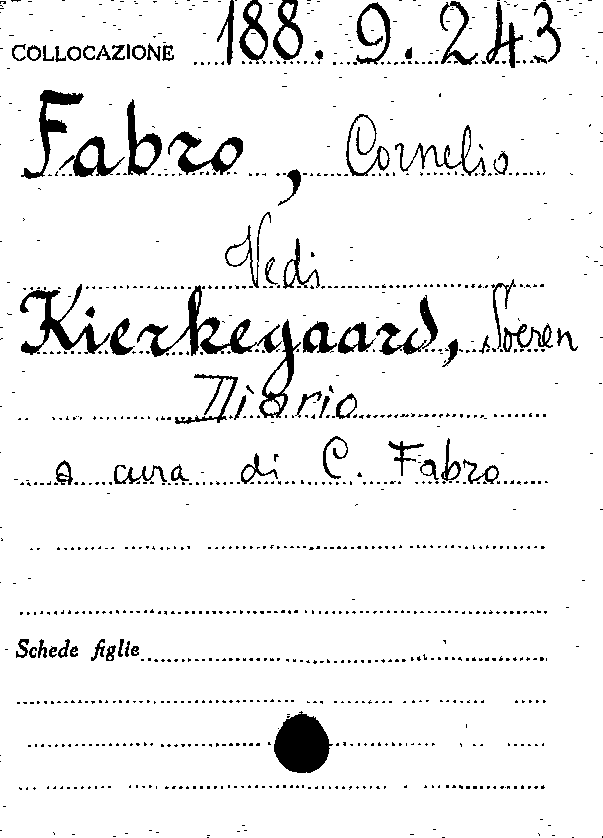 COLLOCAZIONE 188.9.243
Fabro, Cornelio
Vedi
Kierkegaard, Soeren
Diario
a cura di C. Fabro
Schede figlie